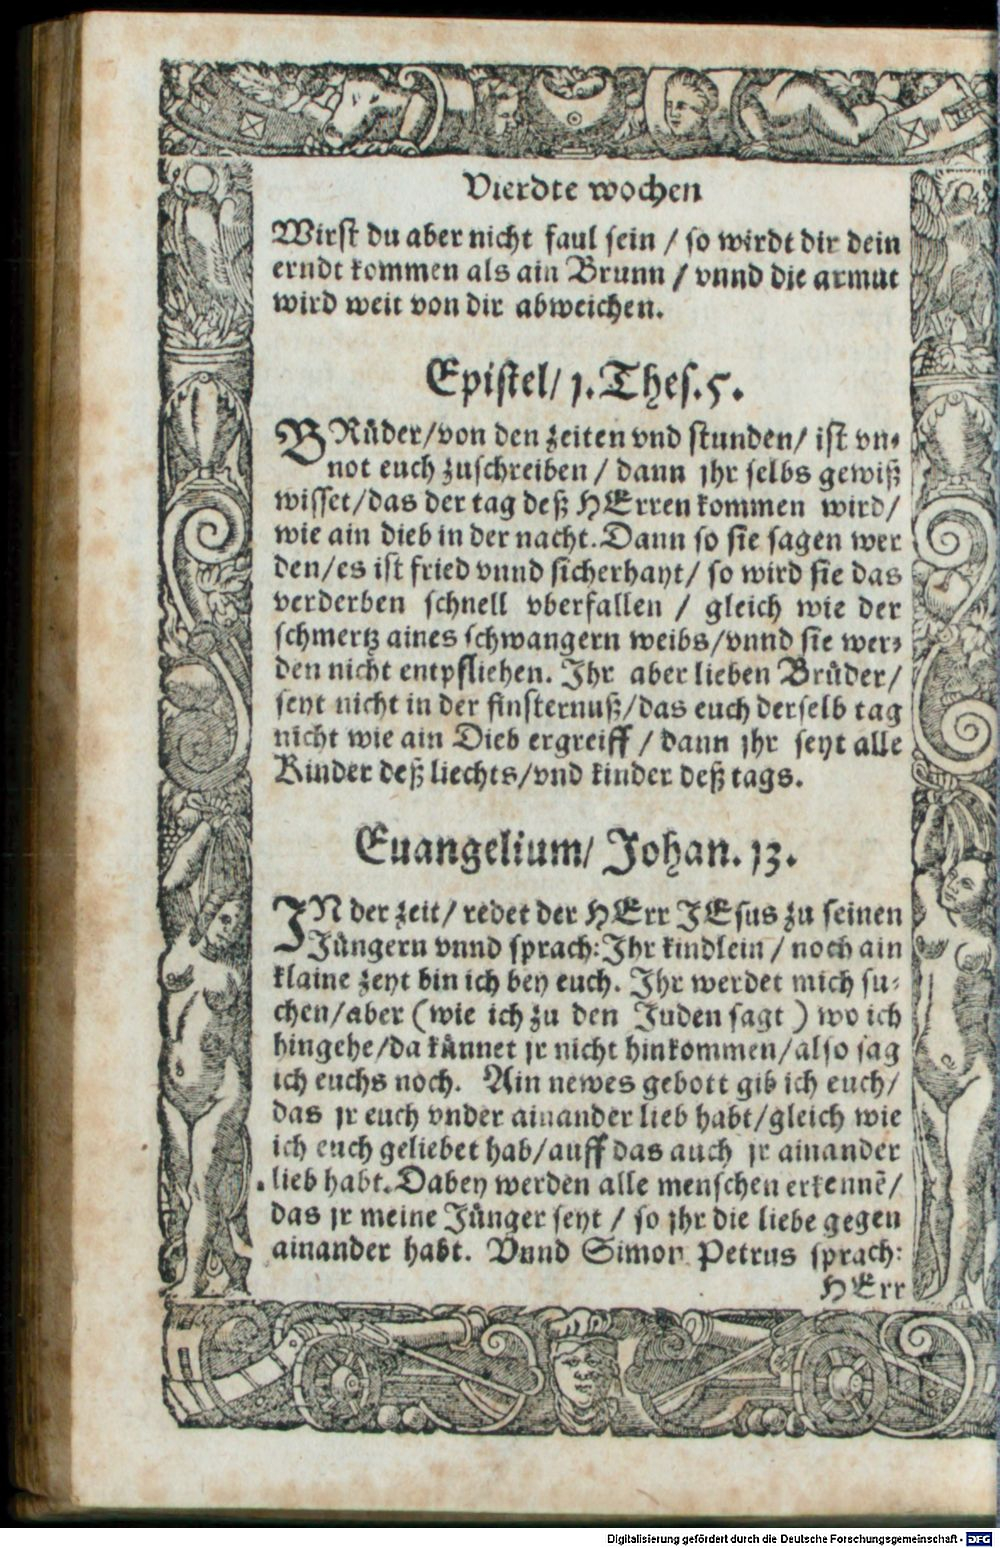 Vierdte wochen
Wirst du aber nicht faul sein / so wirdt dir dein
erndt kommen als ain Brunn / vnnd die armut
wird weit von dir abweichen.
Epistel/ 1. Thes. 5.
BRüder/von den zeiten vnd stunden/ ist vn⸗
not euch zuschreiben / dann jhr selbs gewiß
wisset/das der tag deß HErren kommen wird/
wie ain dieb in der nacht. Dann so sie sagen wer
den/es ist fried vnnd sicherhayt/ so wird sie das
verderben schnell vberfallen / gleich wie der
schmertz aines schwangern weibs/vnnd sie wer⸗
den nicht entpfliehen. Ihr aber lieben Brüder/
seyt nicht in der finsternuß/das euch derselb tag
nicht wie ain Dieb ergreiff / dann jhr seyt alle
Kinder deß liechts/vnd kinder deß tags.
Euangelium/ Johan. 13.
IN der zeit/ redet der HErr JEsus zu seinen
Jüngern vnnd sprach: Ihr kindlein / noch ain
klaine zeyt bin ich bey euch. Ihr werdet mich su⸗
chen/aber (wie ich zu den Juden sagt) wo ich
hingehe/da künnet jr nicht hinkommen/also sag
ich euchs noch. Ain newes gebott gib ich euch/
das jr euch vnder ainander lieb habt/gleich wie
ich euch geliebet hab/auff das auch jr ainander
lieb habt. Dabey werden alle menschen erkennē/
das jr meine Jünger seyt / so jhr die liebe gegen
ainander habt. Vnnd Simon Petrus sprach:
HErr
Digitalisierung gefördert durch die Deutsche Forschungsgemeinschaft - DFG